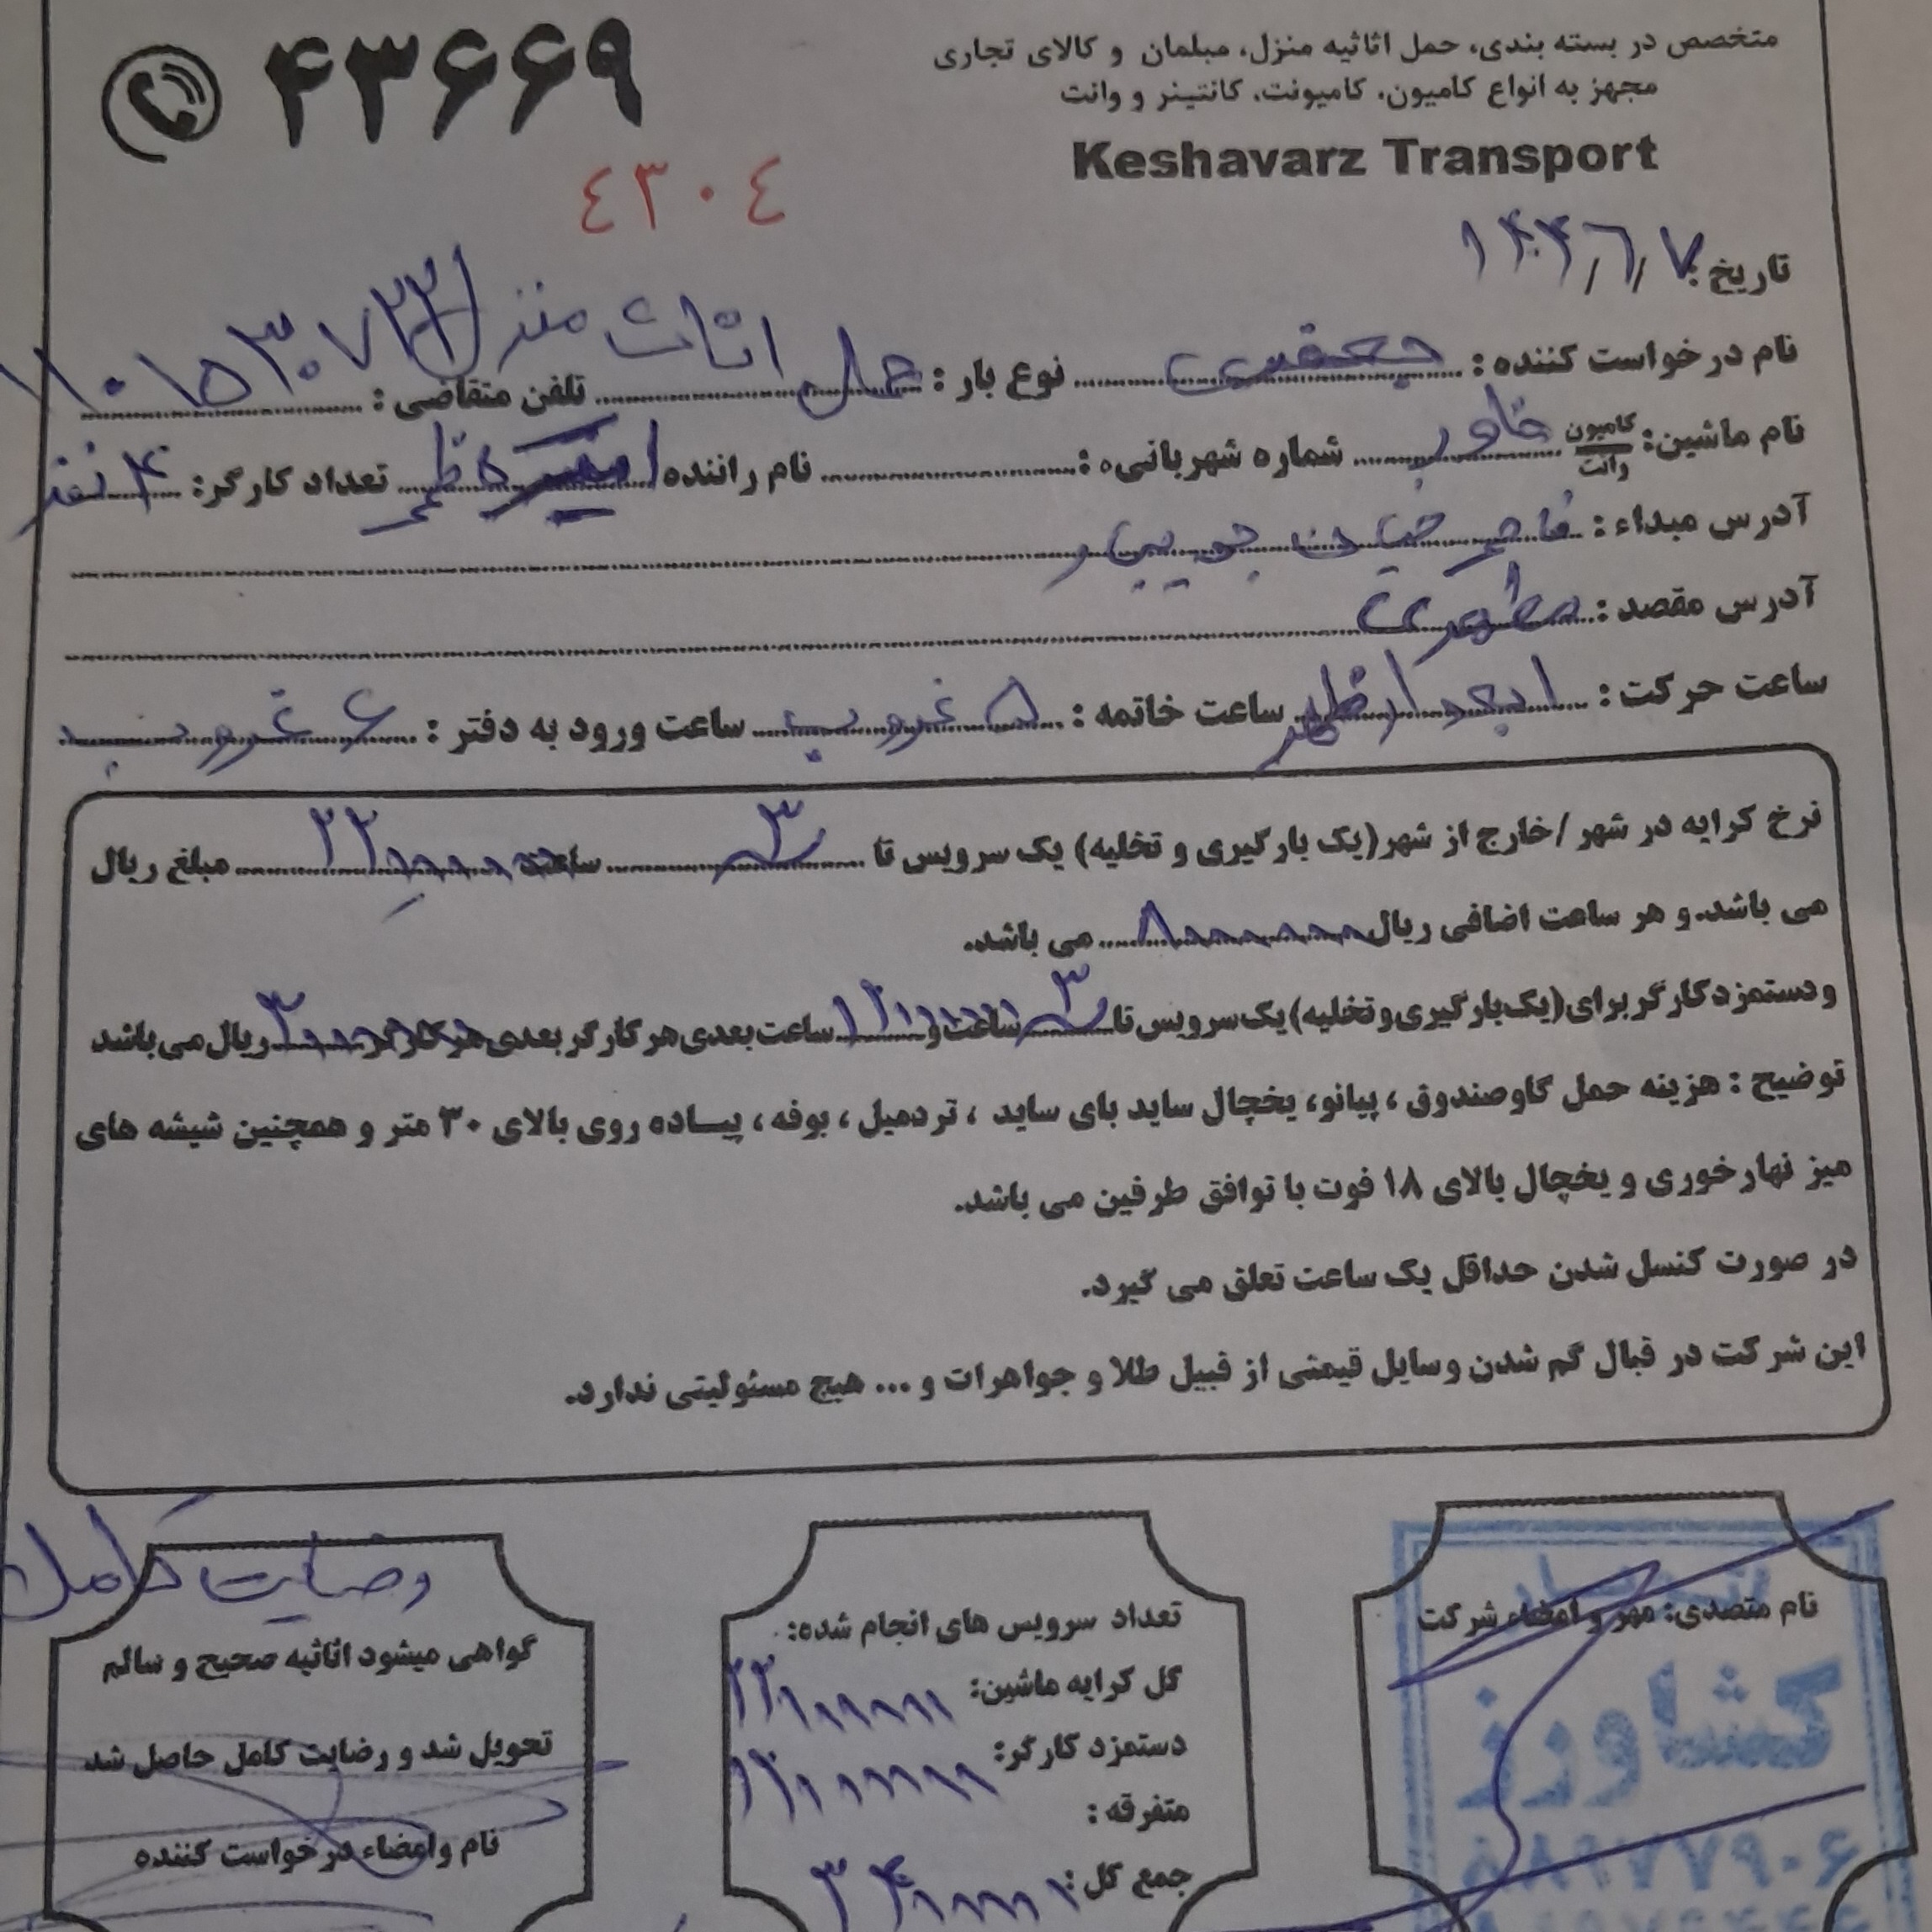 متخصص در بسته بندی، حمل اثاثیه منزل، مبلمان و کالای تجاری
مجهز به انواع کامیون، کامیونت، کانتینر و وانت
۴۳۶۶۹
Keshavarz Transport
٤٣٠٤
تاریخ: ۱۴۰۴/۶/۷
نام درخواست کننده: جعفری نوع بار: حمل اثاث منزل تلفن متقاضی:
نام ماشین: کامیون وانت خاور شماره شهربانی: نام راننده کاظمی تعداد کارگر: ۴ نفر
آدرس مبداء: خیابان جویبار
آدرس مقصد: مطهری
ساعت حرکت: ۱ بعد از ظهر ساعت خاتمه: ۵ غروب ساعت ورود به دفتر: ۶ غروب
نرخ کرایه در شهر /خارج از شهر(یک بارگیری و تخلیه) یک سرویس تا ۳ ساعت مبلغ ریال
می باشد.و هر ساعت اضافی ریال می باشد.
ودستمزدکارگربرای(یک‌بارگیری‌وتخلیه)یک‌سرویس‌تا ۳ ساعت‌و ساعت‌بعدی‌هرکارگربعدی‌هرکارگر ریال‌می‌باشد
توضیح : هزینه حمل گاوصندوق ، پیانو، یخچال ساید بای ساید ، تردمیل ، بوفه ، پیاده روی بالای ۳۰ متر و همچنین شیشه های
میز نهارخوری و یخچال بالای ۱۸ فوت با توافق طرفین می باشد.
در صورت کنسل شدن حداقل یک ساعت تعلق می گیرد.
این شرکت در قبال گم شدن وسایل قیمتی از قبیل طلا و جواهرات و ... هیچ مسئولیتی ندارد.
نام متصدی: مهر و امضاء شرکت
کشاورز
تعداد سرویس های انجام شده:
کل کرایه ماشین:
دستمزد کارگر:
متفرقه :
جمع کل:
رضایت کامل
گواهی میشود اثاثیه صحیح و سالم
تحویل شد و رضایت کامل حاصل شد
نام وامضاء درخواست کننده